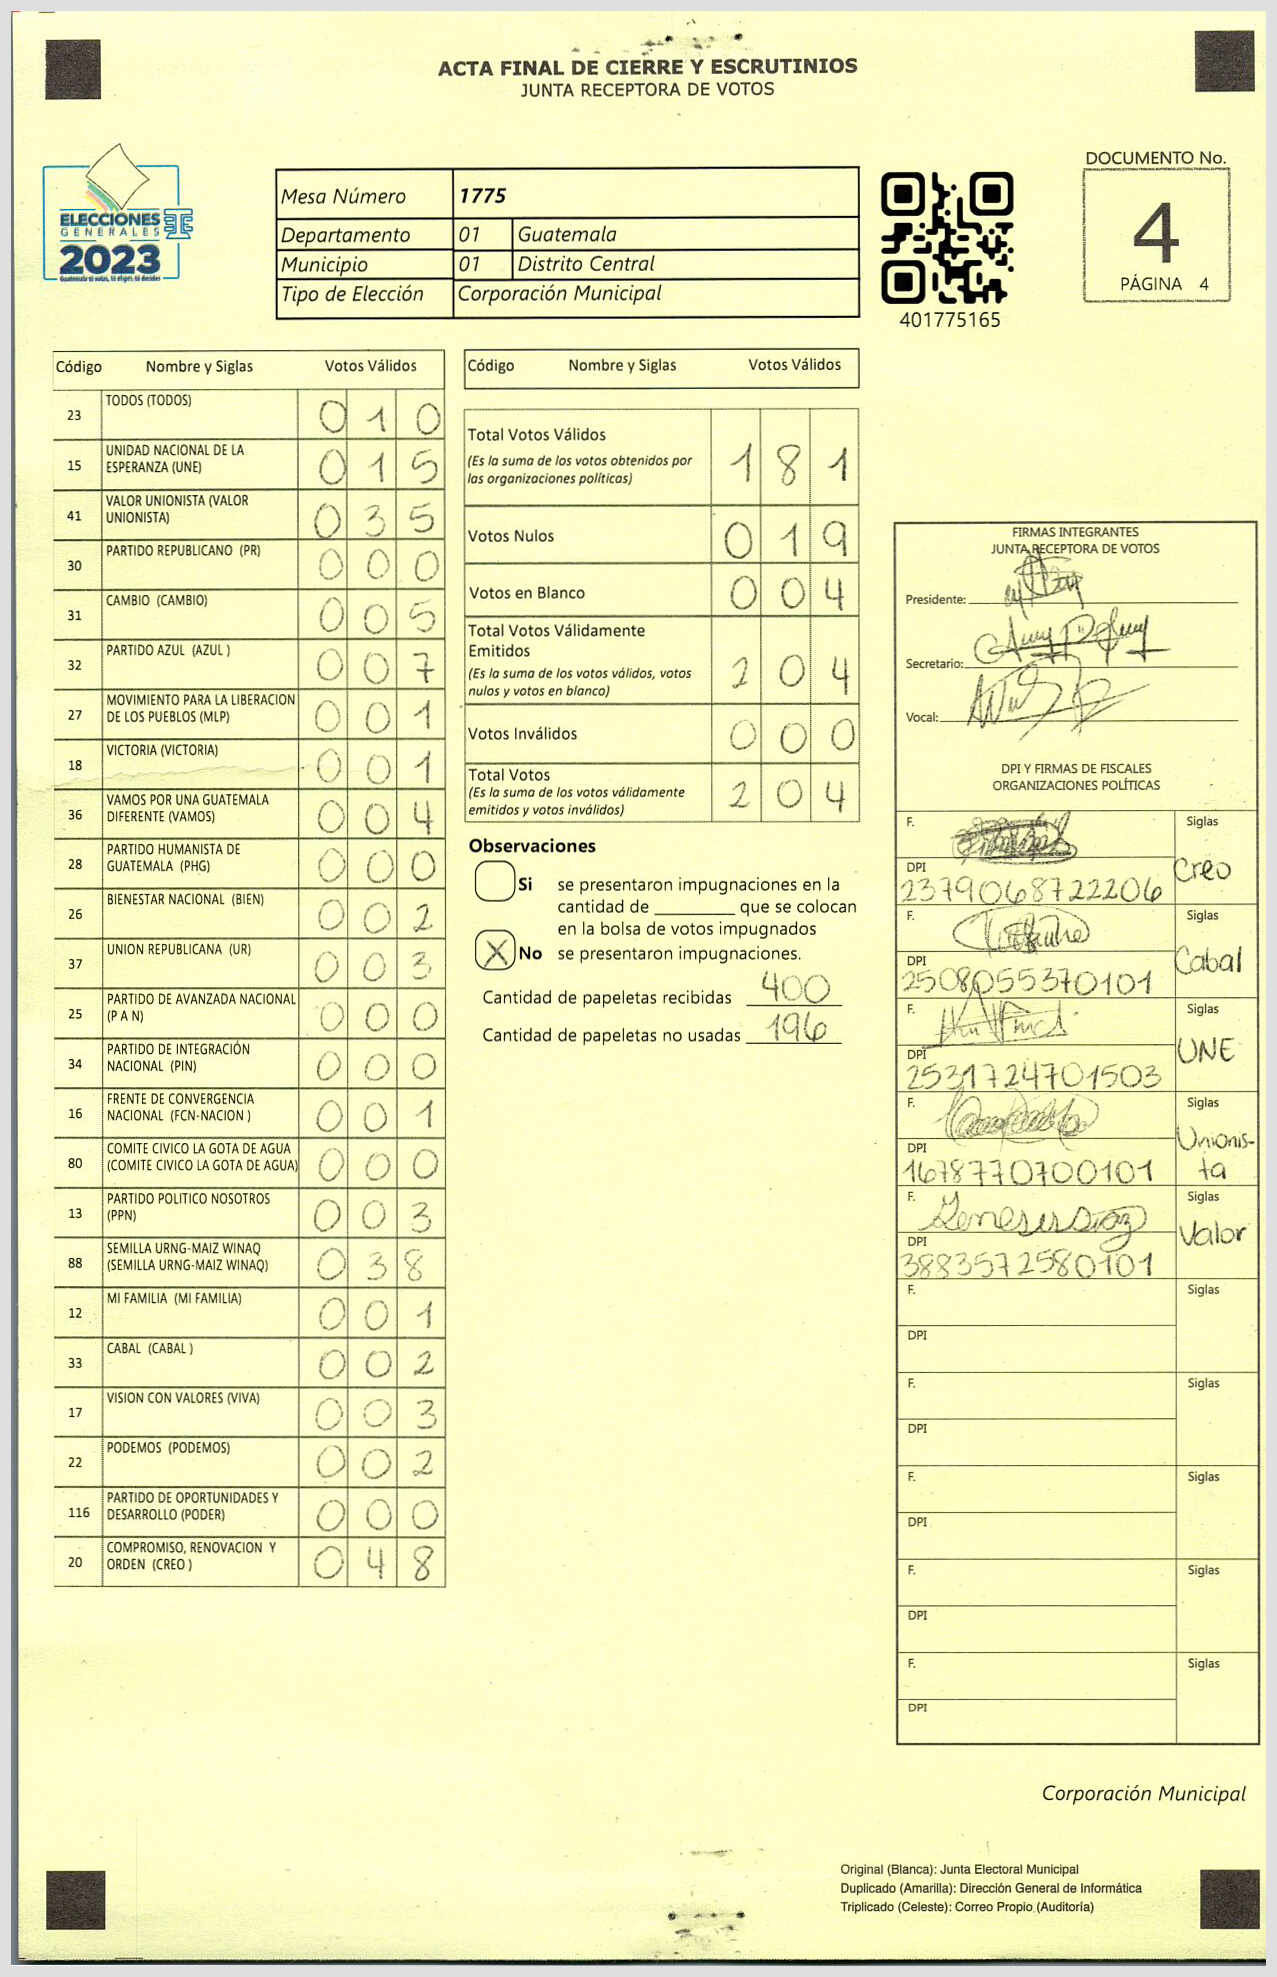 ACTA FINAL DE CIERRE Y ESCRUTINIOS
JUNTA RECEPTORA DE VOTOS
ELECCIONES
GENERALES
2023
Mesa Número 1775
Departamento 01 Guatemala
Municipio 01 Distrito Central
Tipo de Elección Corporación Municipal
401775165
DOCUMENTO No.
4
PÁGINA 4
Código Nombre y Siglas Votos Válidos
23 TODOS (TODOS) 0 1 0
15 UNIDAD NACIONAL DE LA
ESPERANZA (UNE) 0 1 5
41 VALOR UNIONISTA (VALOR
UNIONISTA) 0 3 5
30 PARTIDO REPUBLICANO (PR) 0 0 0
31 CAMBIO (CAMBIO) 0 0 5
32 PARTIDO AZUL (AZUL ) 0 0 7
27 MOVIMIENTO PARA LA LIBERACION
DE LOS PUEBLOS (MLP) 0 0 1
18 VICTORIA (VICTORIA) 0 0 1
36 VAMOS POR UNA GUATEMALA
DIFERENTE (VAMOS) 0 0 4
28 PARTIDO HUMANISTA DE
GUATEMALA (PHG) 0 0 0
26 BIENESTAR NACIONAL (BIEN) 0 0 2
37 UNION REPUBLICANA (UR) 0 0 3
25 PARTIDO DE AVANZADA NACIONAL
(P A N) 0 0 0
34 PARTIDO DE INTEGRACIÓN
NACIONAL (PIN) 0 0 0
16 FRENTE DE CONVERGENCIA
NACIONAL (FCN-NACION ) 0 0 1
80 COMITE CIVICO LA GOTA DE AGUA
(COMITE CIVICO LA GOTA DE AGUA) 0 0 0
13 PARTIDO POLITICO NOSOTROS
(PPN) 0 0 3
88 SEMILLA URNG-MAIZ WINAQ
(SEMILLA URNG-MAIZ WINAQ) 0 3 8
12 MI FAMILIA (MI FAMILIA) 0 0 1
33 CABAL (CABAL ) 0 0 2
17 VISION CON VALORES (VIVA) 0 0 3
22 PODEMOS (PODEMOS) 0 0 2
116 PARTIDO DE OPORTUNIDADES Y
DESARROLLO (PODER) 0 0 0
20 COMPROMISO, RENOVACION Y
ORDEN (CREO ) 0 4 8
Código Nombre y Siglas Votos Válidos
Total Votos Válidos
(Es la suma de los votos obtenidos por
las organizaciones políticas) 1 8 1
Votos Nulos 0 1 9
Votos en Blanco 0 0 4
Total Votos Válidamente
Emitidos
(Es la suma de los votos válidos, votos
nulos y votos en blanco) 2 0 4
Votos Inválidos 0 0 0
Total Votos
(Es la suma de los votos válidamente
emitidos y votos inválidos) 2 0 4
Observaciones
Si se presentaron impugnaciones en la
cantidad de ________ que se colocan
en la bolsa de votos impugnados
X No se presentaron impugnaciones.
Cantidad de papeletas recibidas 400
Cantidad de papeletas no usadas 196
FIRMAS INTEGRANTES
JUNTA RECEPTORA DE VOTOS
Presidente:
Secretario:
Vocal:
DPI Y FIRMAS DE FISCALES
ORGANIZACIONES POLÍTICAS
F. Siglas
Creo
DPI
2379068722206
F. Siglas
Cabal
DPI
2508055370101
F. Siglas
UNE
DPI
2531724701503
F. Siglas
Unionis-
ta
DPI
1678770700101
F. Genesis Díaz Siglas
Valor
DPI
3883572580101
F. Siglas
DPI
F. Siglas
DPI
F. Siglas
DPI
F. Siglas
DPI
F. Siglas
DPI
Corporación Municipal
Original (Blanca): Junta Electoral Municipal
Duplicado (Amarilla): Dirección General de Informática
Triplicado (Celeste): Correo Propio (Auditoría)